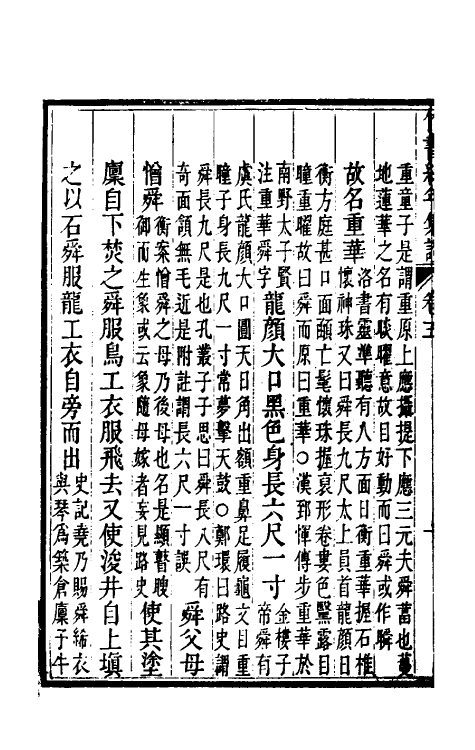 重童子是謂重原上應攝提下應三元夫舜蕾也蔓
地蓮華之名有晱曜意故目好動而曰舜或作瞬
故名重華
洛書靈準聽有人方面日衡重華握石椎
懷神珠又曰舜長九尺太上員首龍顏日
衡方庭甚口面顄亡髦懷珠握褒形卷婁色黳露目
瞳重曜故曰舜而原曰重華○漢郅惲傳步重華於
南野太子賢
注重華舜字
龍顏大口黑色身長六尺一寸
金樓子
帝舜有
虞氏龍顏大口圓天日角出額重鼻足履龜文目重
瞳子身長九尺一寸常夢擊天鼓○鄭環曰路史謂
舜長九尺是也孔叢子子思曰舜長八尺有
奇面頷無毛近是附註謂長六尺一寸誤
舜父母
憎舜
衡案憎舜之母乃後母也名是顯瞽瞍
御而生象或云象隨母嫁者妄見路史
使其塗
廩自下焚之舜服鳥工衣服飛去又使浚井自上塡
之以石舜服龍工衣自旁而出
史記堯乃賜舜絺衣
與琴爲築倉廩子牛